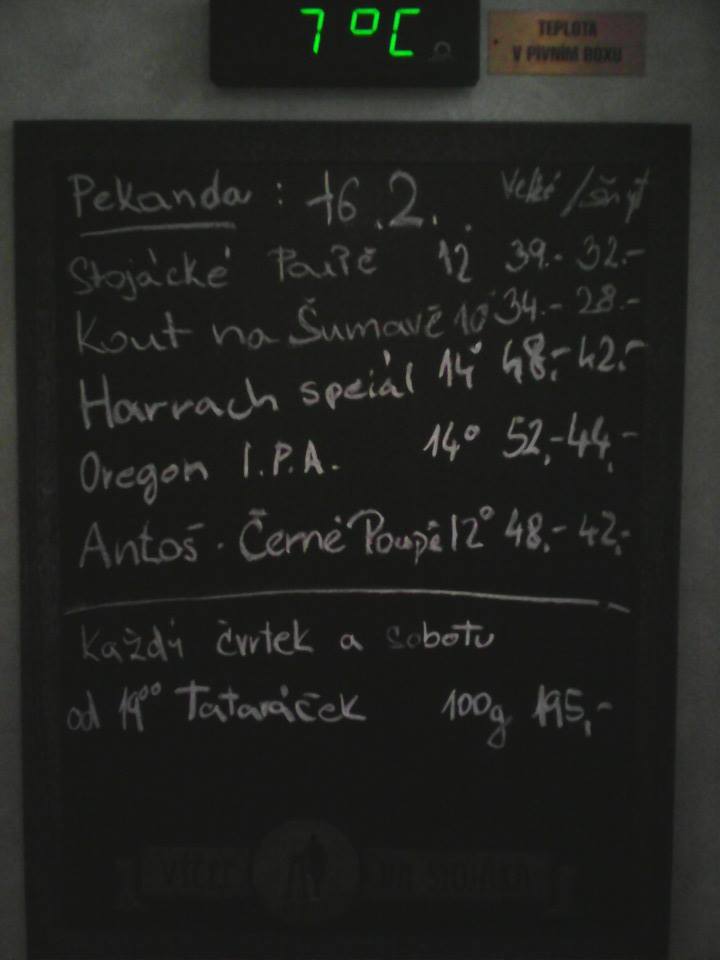 7°C
TEPLOTA
V PIVNÍM BOXU
Pekanda : 16.2. Velké / šnyt
Stojácké 12 39.- 32.-
Kout na Šumavě 10° 34.- 28.-
Harrach speiál 14° 48,- 42,-
Oregon I.P.A. 14° 52,- 44,-
Antoš. Černé Poupě 12° 48,- 42,-
Každý čvrtek a sobotu
od 19⁰⁰ Tataráček 100g 195,-